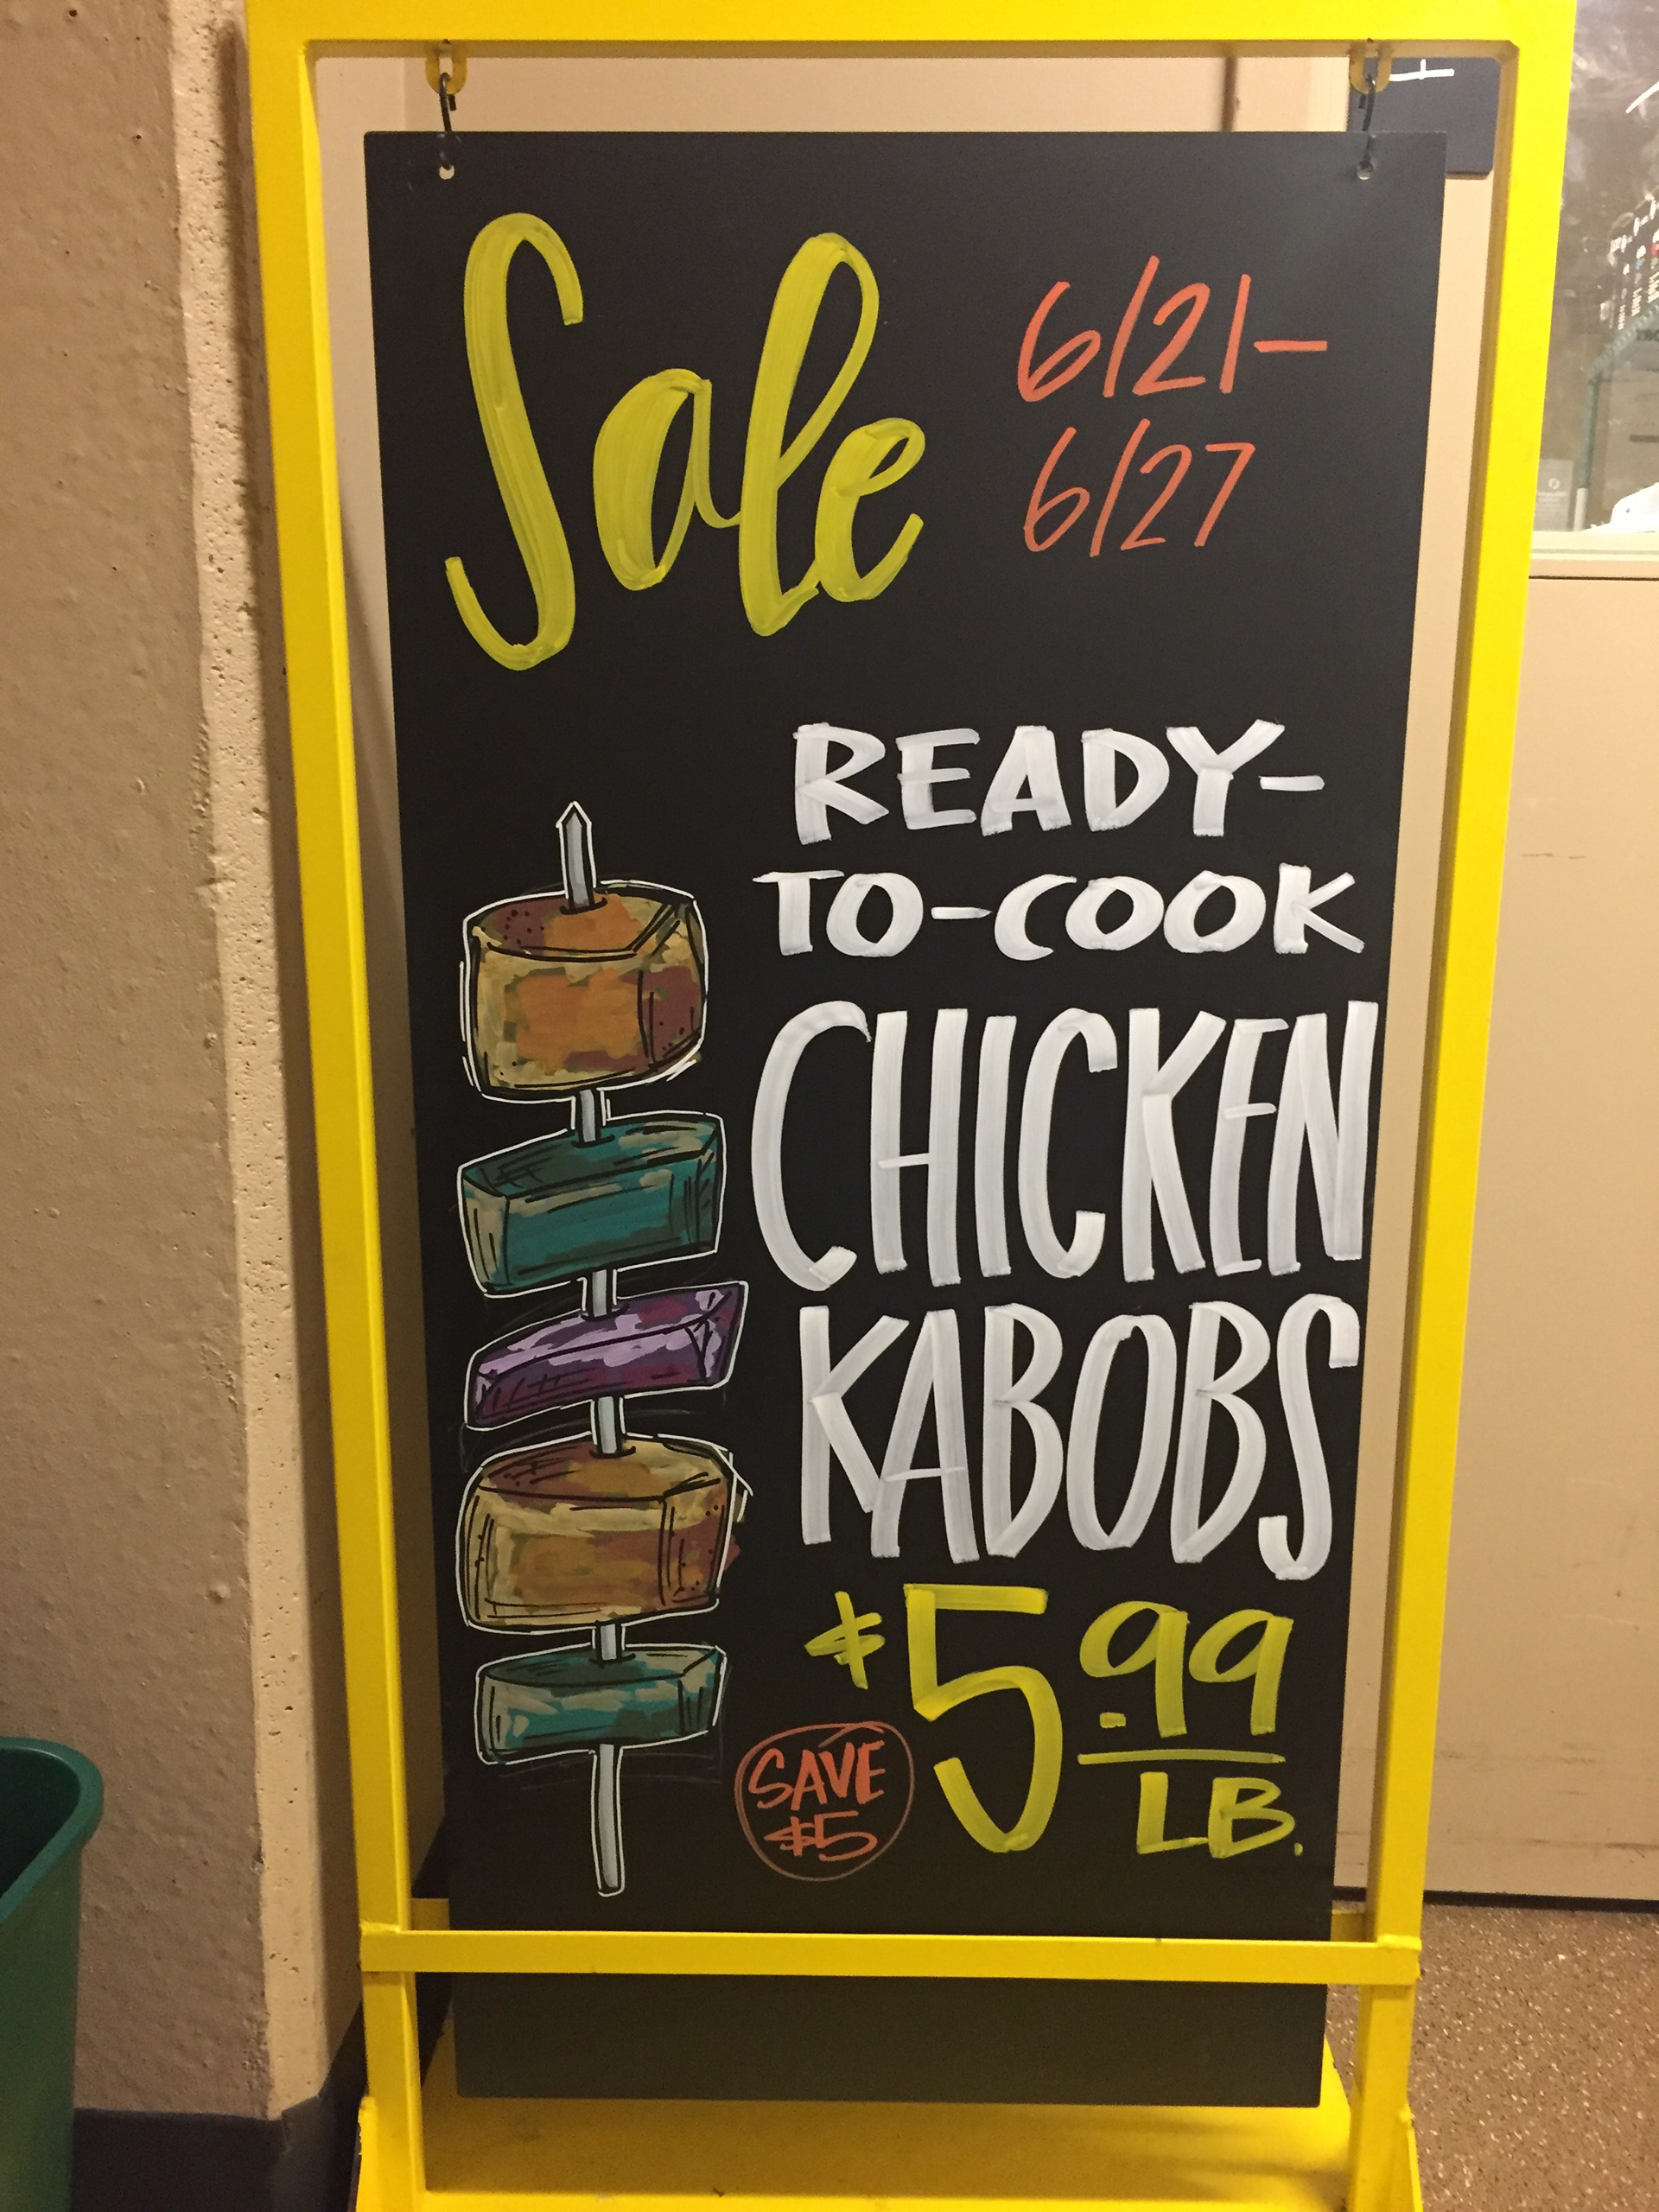 Sale
6/21-
6/27
READY-
TO-COOK
CHICKEN
KABOBS
$5.99
LB.
SAVE
$5